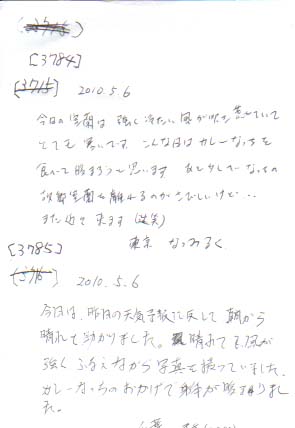 [3784]
[3715] 2010.5.6
今日の室蘭は 強く冷たい風が吹き荒れていて
とても寒いです。こんな日はカレーなっちを
食べて暖まろうと思います
故郷室蘭を離れるのがさびしいけど・・
また必ず来ます (笑)
東京 なつみるく
[3785]
2010.5.6
今日は、昨日の天気予報に反して 朝から
晴れて助かりました。晴れても風が
強く ふるえながら写真を撮っていました。
カレーなっちのおかげで 身体が暖まりまし
た。